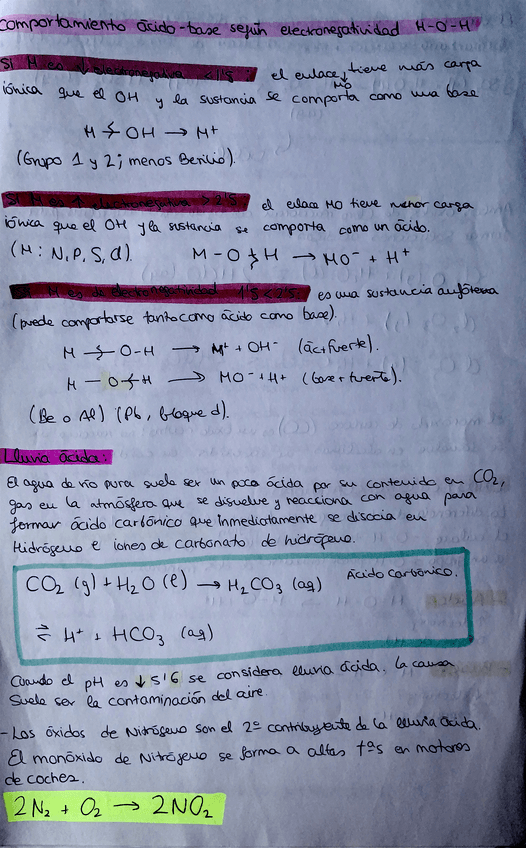 Comportamiento ácido-base según electronegatividad H-O-H
Si M es ↓ electronegativa <1'5: el enlace MO tiene más carga
iónica que el OH y la sustancia se comporta como una base
M OH → M+
(Grupo 1 y 2; menos Berilio).
Si M es ↑ electronegativa > 2'5: el enlace MO tiene menor carga
iónica que el OH y la sustancia se comporta como un ácido.
(M: N, P, S, Cl). M-O H → MO- + H+
Si M es de electronegatividad 1'5 < 2'5 es una sustancia anfótera
(puede comportarse tanto como ácido como base).
M O-H → M+ + OH- (ác+fuerte).
M - O H → MO- + H+ (base+fuerte).
(Be o Al) (Pb, bloque d).
Lluvia ácida:
El agua de río pura suele ser un poco ácida por su contenido en CO2,
gas en la atmósfera que se disuelve y reacciona con agua para
formar ácido carbónico que inmediatamente se disocia en
Hidrógeno e iones de carbonato de hidrógeno.
CO2 (g) + H2O (l) → H2CO3 (aq) Ácido Carbónico.
⇌ H+ + HCO3 (aq)
Cuando el pH es ↓ 5'6 se considera lluvia ácida. La causa
suele ser la contaminación del aire.
- Los óxidos de Nitrógeno son el 2º contribuyente de la lluvia ácida.
El monóxido de Nitrógeno se forma a altas tªs en motores
de coches.
2N2 + O2 → 2NO2